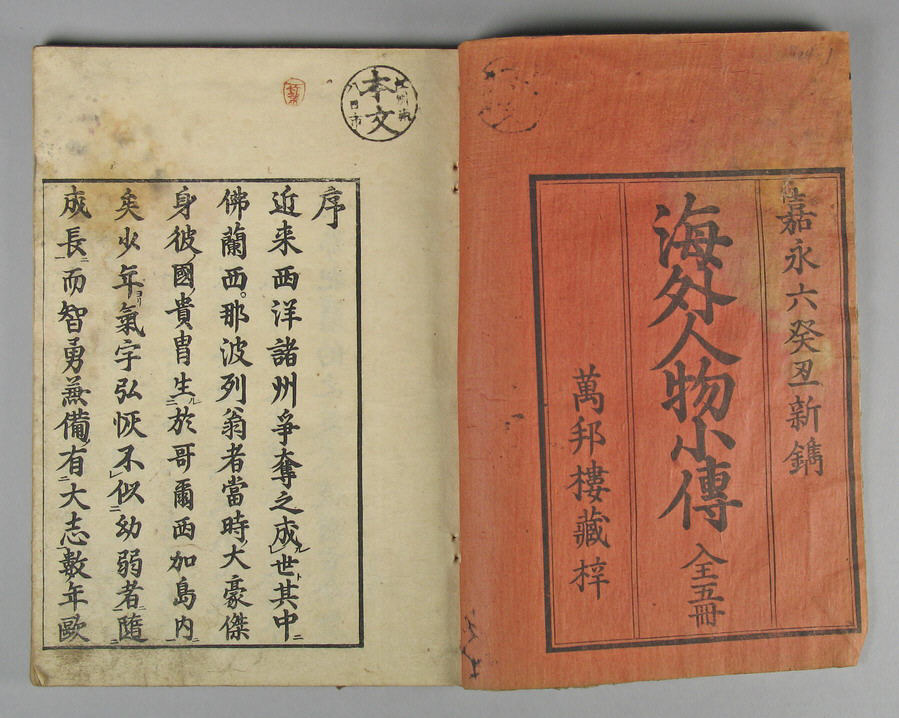 嘉永六癸丑新鐫
海外人物小傳 全五冊
萬邦樓藏梓
本文
八日市
序
近来西洋諸州爭奪之成世其中
佛蘭西。那波列翁者當時大豪傑
身彼國貴冑生於哥爾西加島内
矣少年氣宇弘恢不似幼弱者隨
成長而智勇兼備有大志數年歐